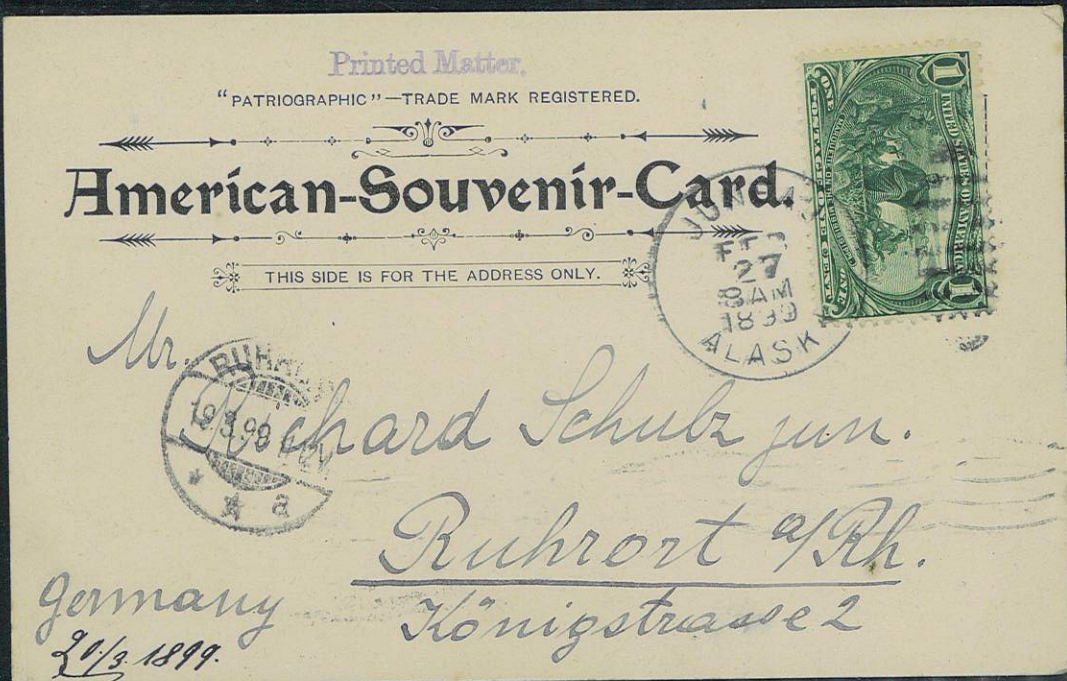 Printed Matter.
"PATRIOGRAPHIC"—TRADE MARK REGISTERED.
American-Souvenir-Card.
THIS SIDE IS FOR THE ADDRESS ONLY.
1
UNITED STATES OF AMERICA
1
FEB
27
8 AM
1899
ALASK
Mr.
19 3 99
a
Richard Schulz jun.
Ruhrort a/Rh.
Königstrasse 2
Germany
20/3. 1899.